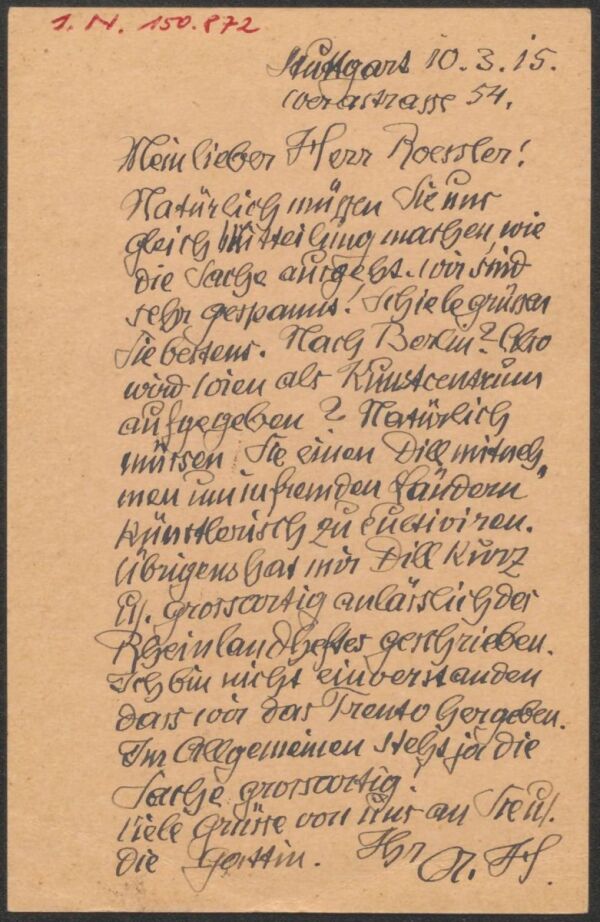 I. N. 150.872
Stuttgart 10.3.15.
Werastrasse 54.
Mein lieber Herr Roessler!
Natürlich müssen Sie uns
gleich Mitteilung machen, wie
die Sache ausgeht. Wir sind
sehr gespannt! Schiele grüssen
Sie bestens. Nach Berlin? Also
wird Wien als Kunstcentrum
aufgegeben? Natürlich
müssen Sie einen Dill mitneh
men um in fremden Ländern"
künstlerisch zu cultiviren.
Übrigens hat mir Dill kurz
u. grossartig anlässlich des
Rheinlandheftes geschrieben.
Ich bin nicht einverstanden
dass wir das Trento hergeben.
Im Allgemeinen steht ja die
Sache grossartig!
Viele Grüsse von uns an Sie u.
die Gattin. Ihr A. H.